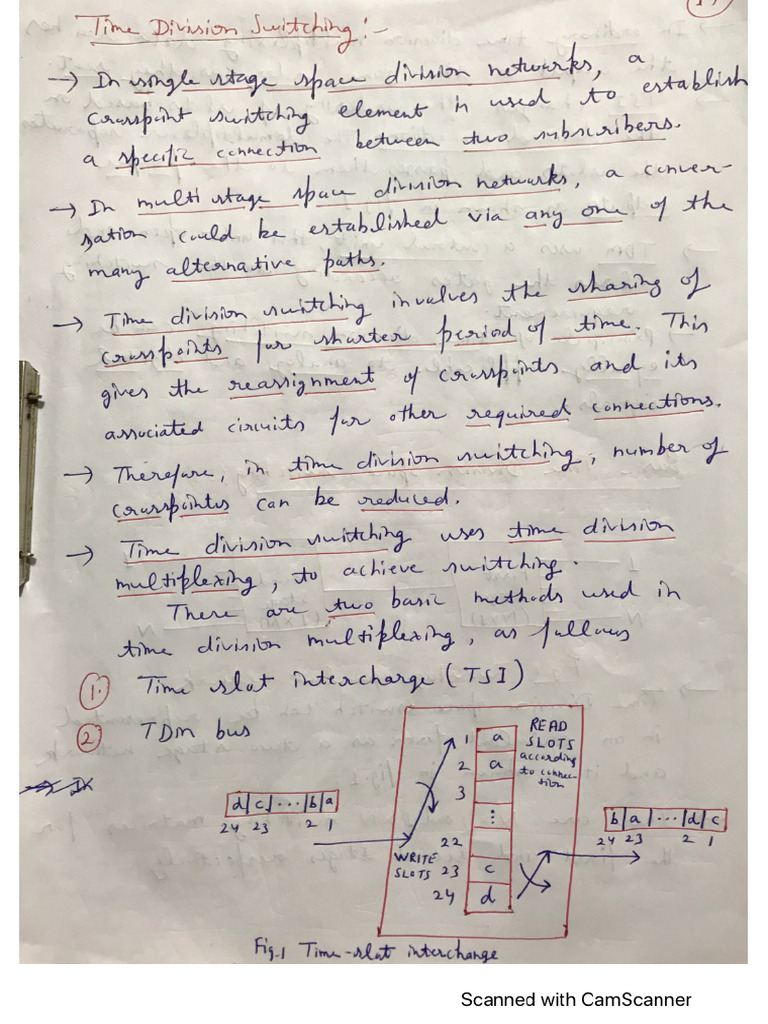 Time Division Switching:-
→ In single stage space division networks, a
crosspoint switching element is used to establish
a specific connection between two subscribers.
→ In multi stage space division networks, a conver-
sation could be established via any one of the
many alternative paths.
→ Time division switching involves the sharing of
crosspoints for shorter period of time. This
gives the reassignment of crosspoints and its
associated circuits for other required connections.
→ Therefore, in time division switching, number of
crosspoints can be reduced.
→ Time division switching uses time division
multiplexing, to achieve switching.
There are two basic methods used in
time division multiplexing, as follows
1. Time slot interchange (TSI)
2 TDM bus
d|c|...|b|a
24 23 2 1
WRITE
SLOTS
1 a
2 a
3
⋮
22
23 c
24 d
READ
SLOTS
according
to connec-
tion
b|a|...|d|c
24 23 2 1
Fig.1 Time-slot interchange
Scanned with CamScanner